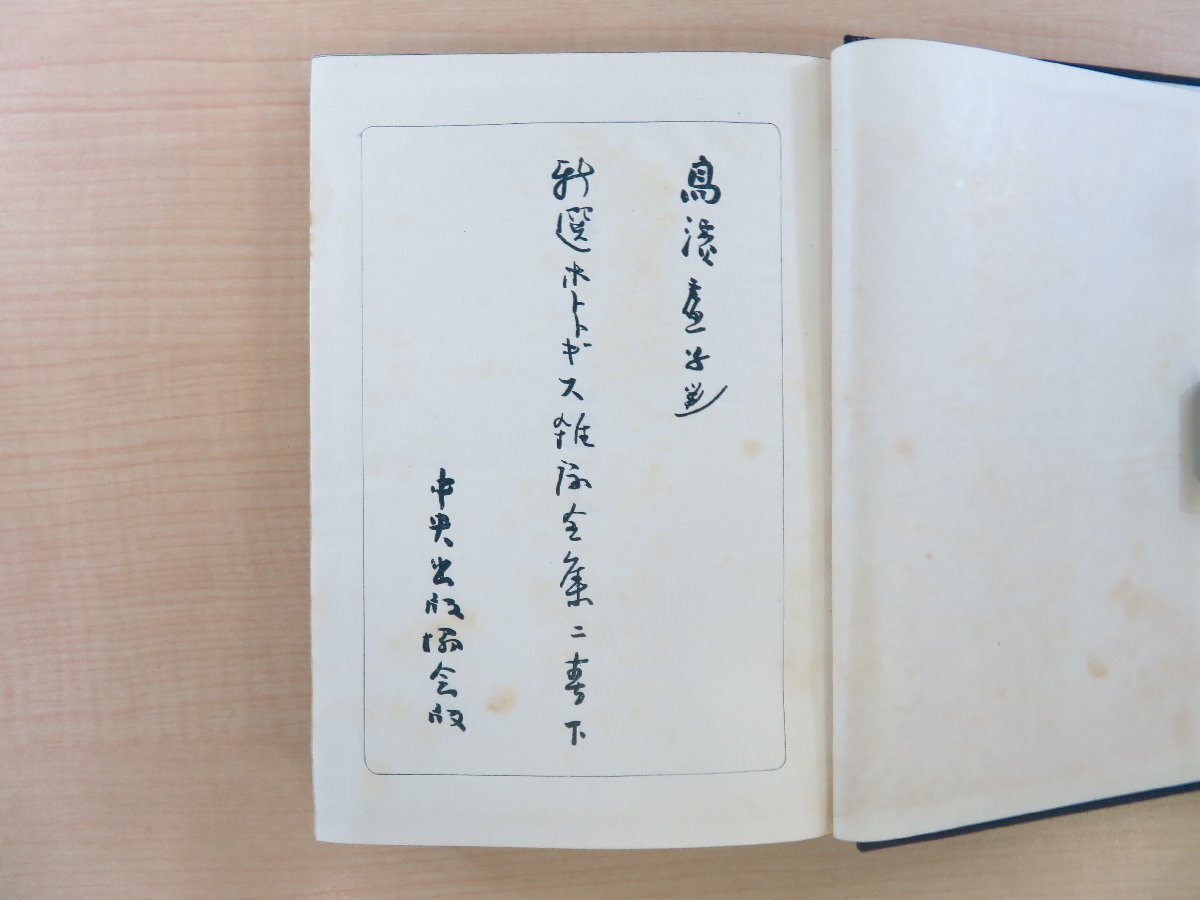 高濱虚子選
新選ホトトギス雑詠全集二春下
中央出版協会版